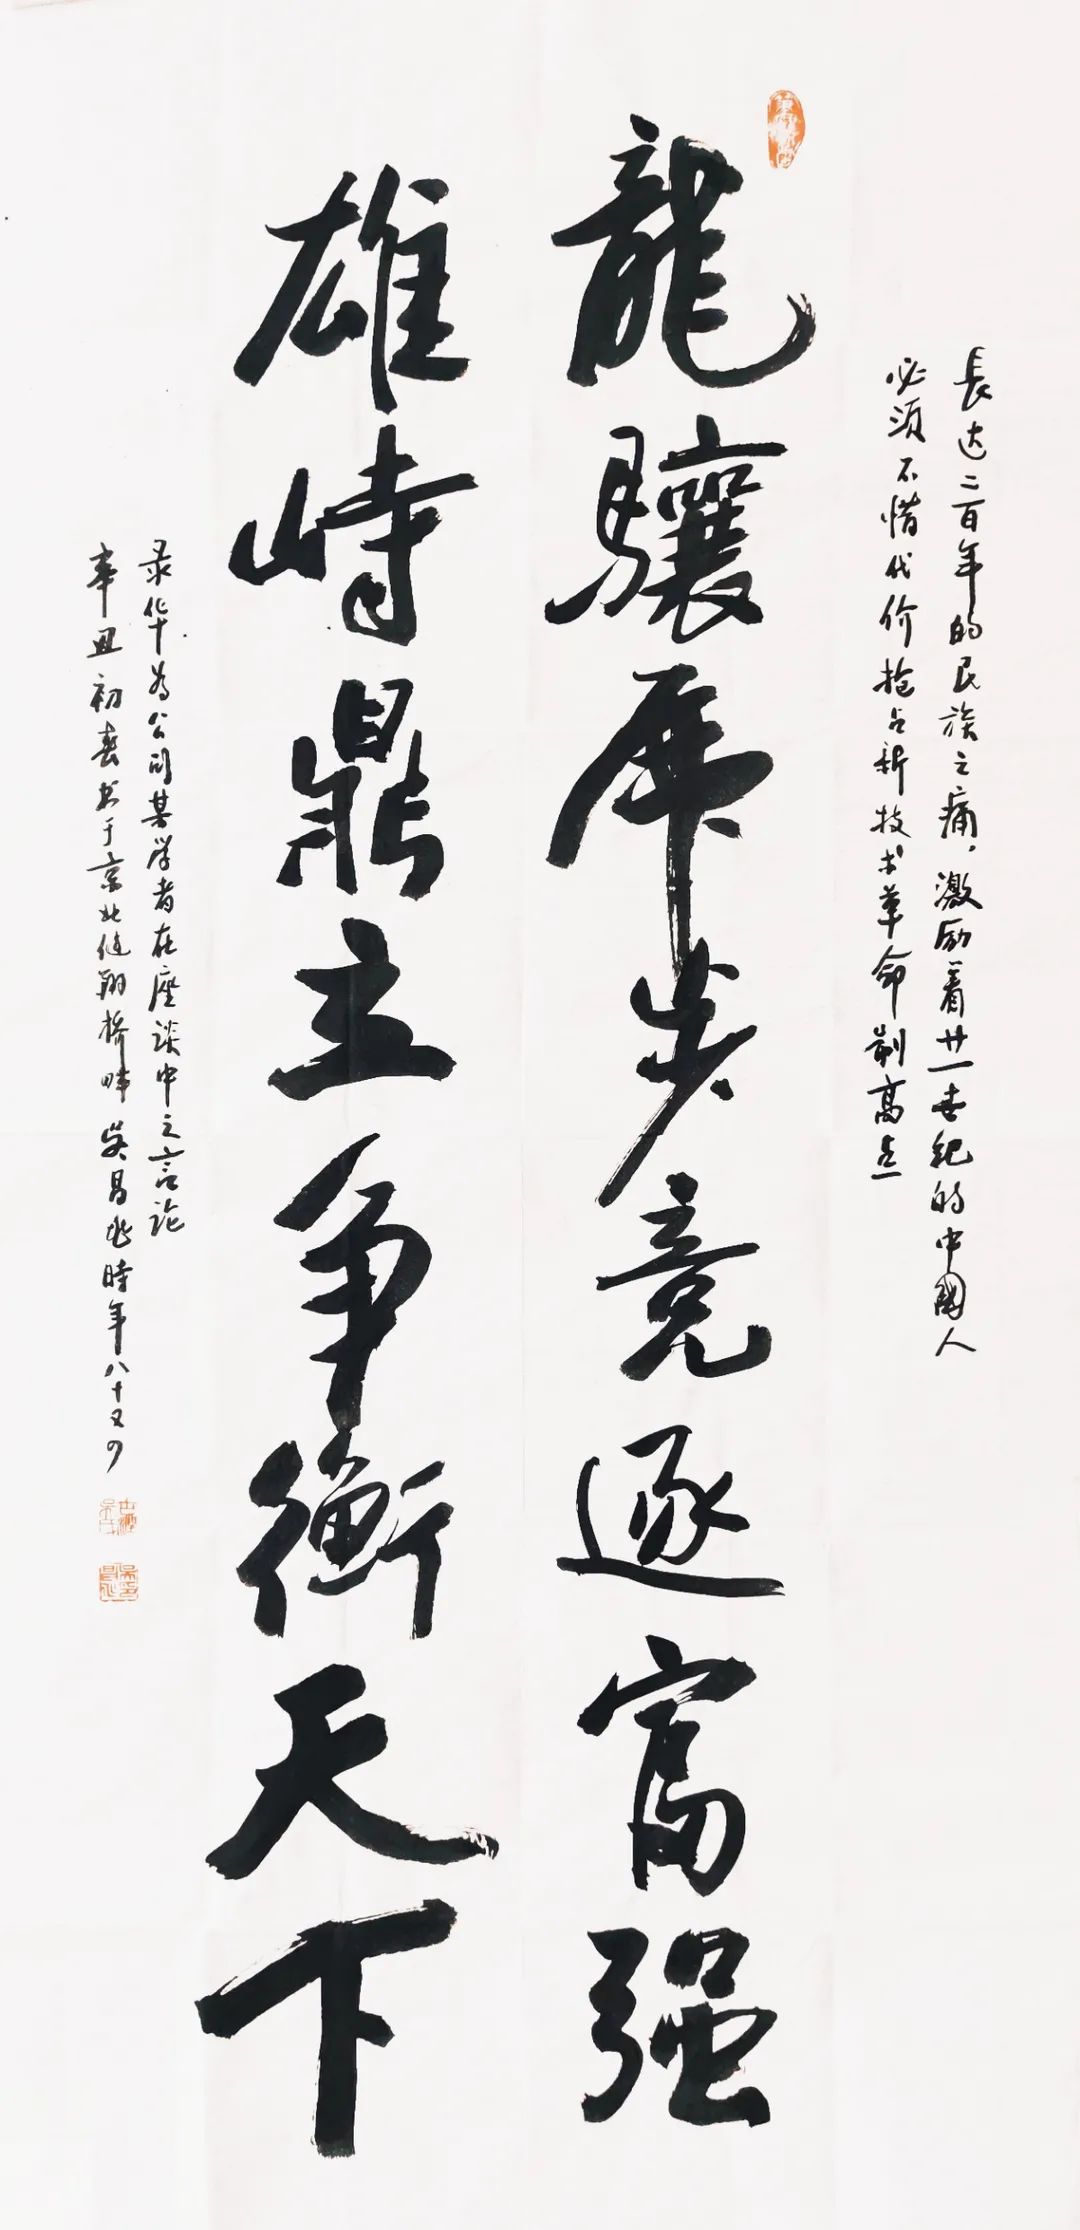 長达二百年的民族之痛，激励着廿一世纪的中國人
必须不惜代价抢占新技术革命制高点
龍驤虎步竞逐富强
雄峙鼎立争衡天下
录华为公司某学者在座谈中之言论
辛丑初春书于京北健翔桥畔吴昌兆時年八十又四